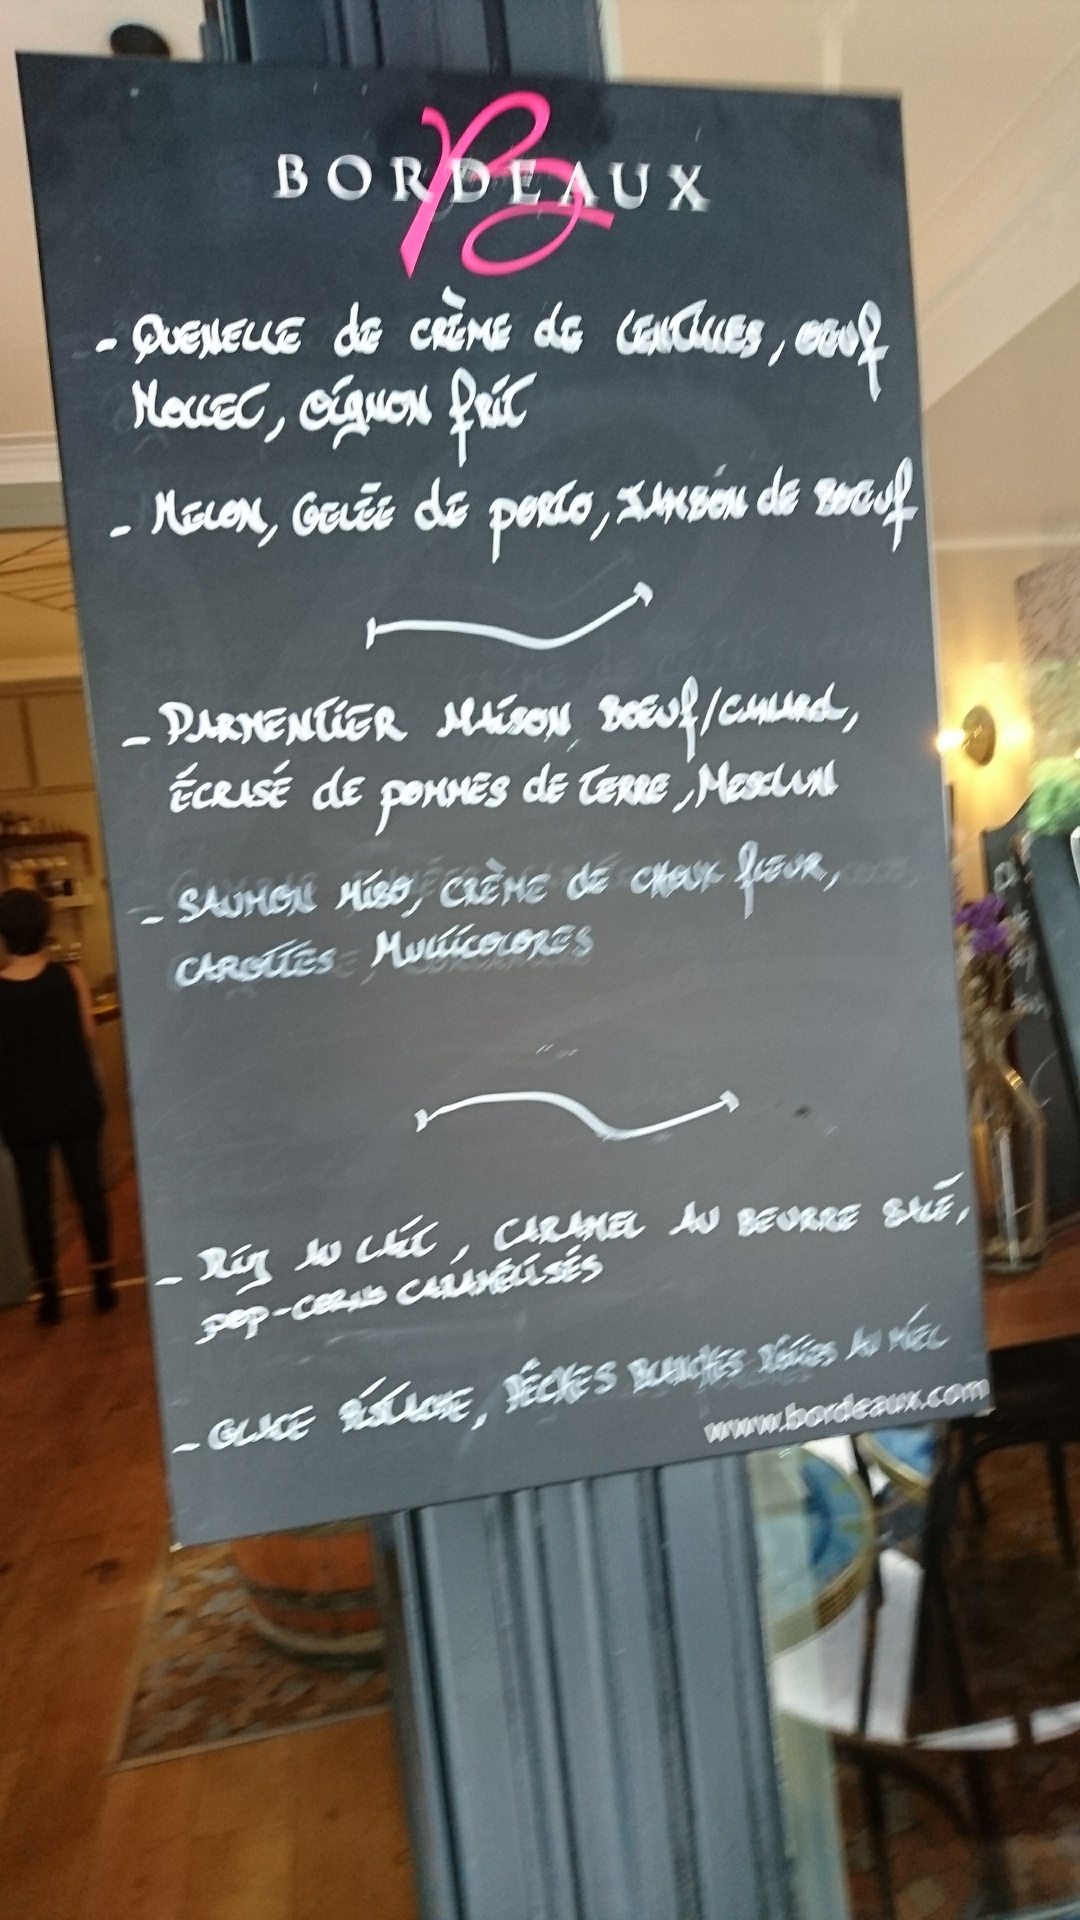 BORDEAUX
- QUENELLE de CRÈME de LENTILLES, OEUf
MOLLET, OIGNON fRIT
- MELON, GELÉE de PORTO, JAMBON de BOEUf
- PARMENTIER MAISON BOEUf/CANARD,
ÉCRASÉ de POMMES de TERRE, MESCLUN
- SAUMON MISO, CRÈME de CHOUX fLEUR,
CAROTTES MULTICOLORES
- RIZ AU LAIT, CARAMEL AU BEURRE SALÉ,
POP-CORNS CARAMÉLISÉS
- GLACE PISTACHE, PÊCHES BLANCHES RÔTIES AU MIEL
www.bordeaux.com